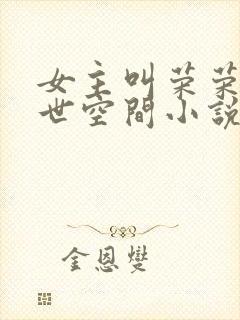 女主叫菜菜
世空間小說
金恩燮